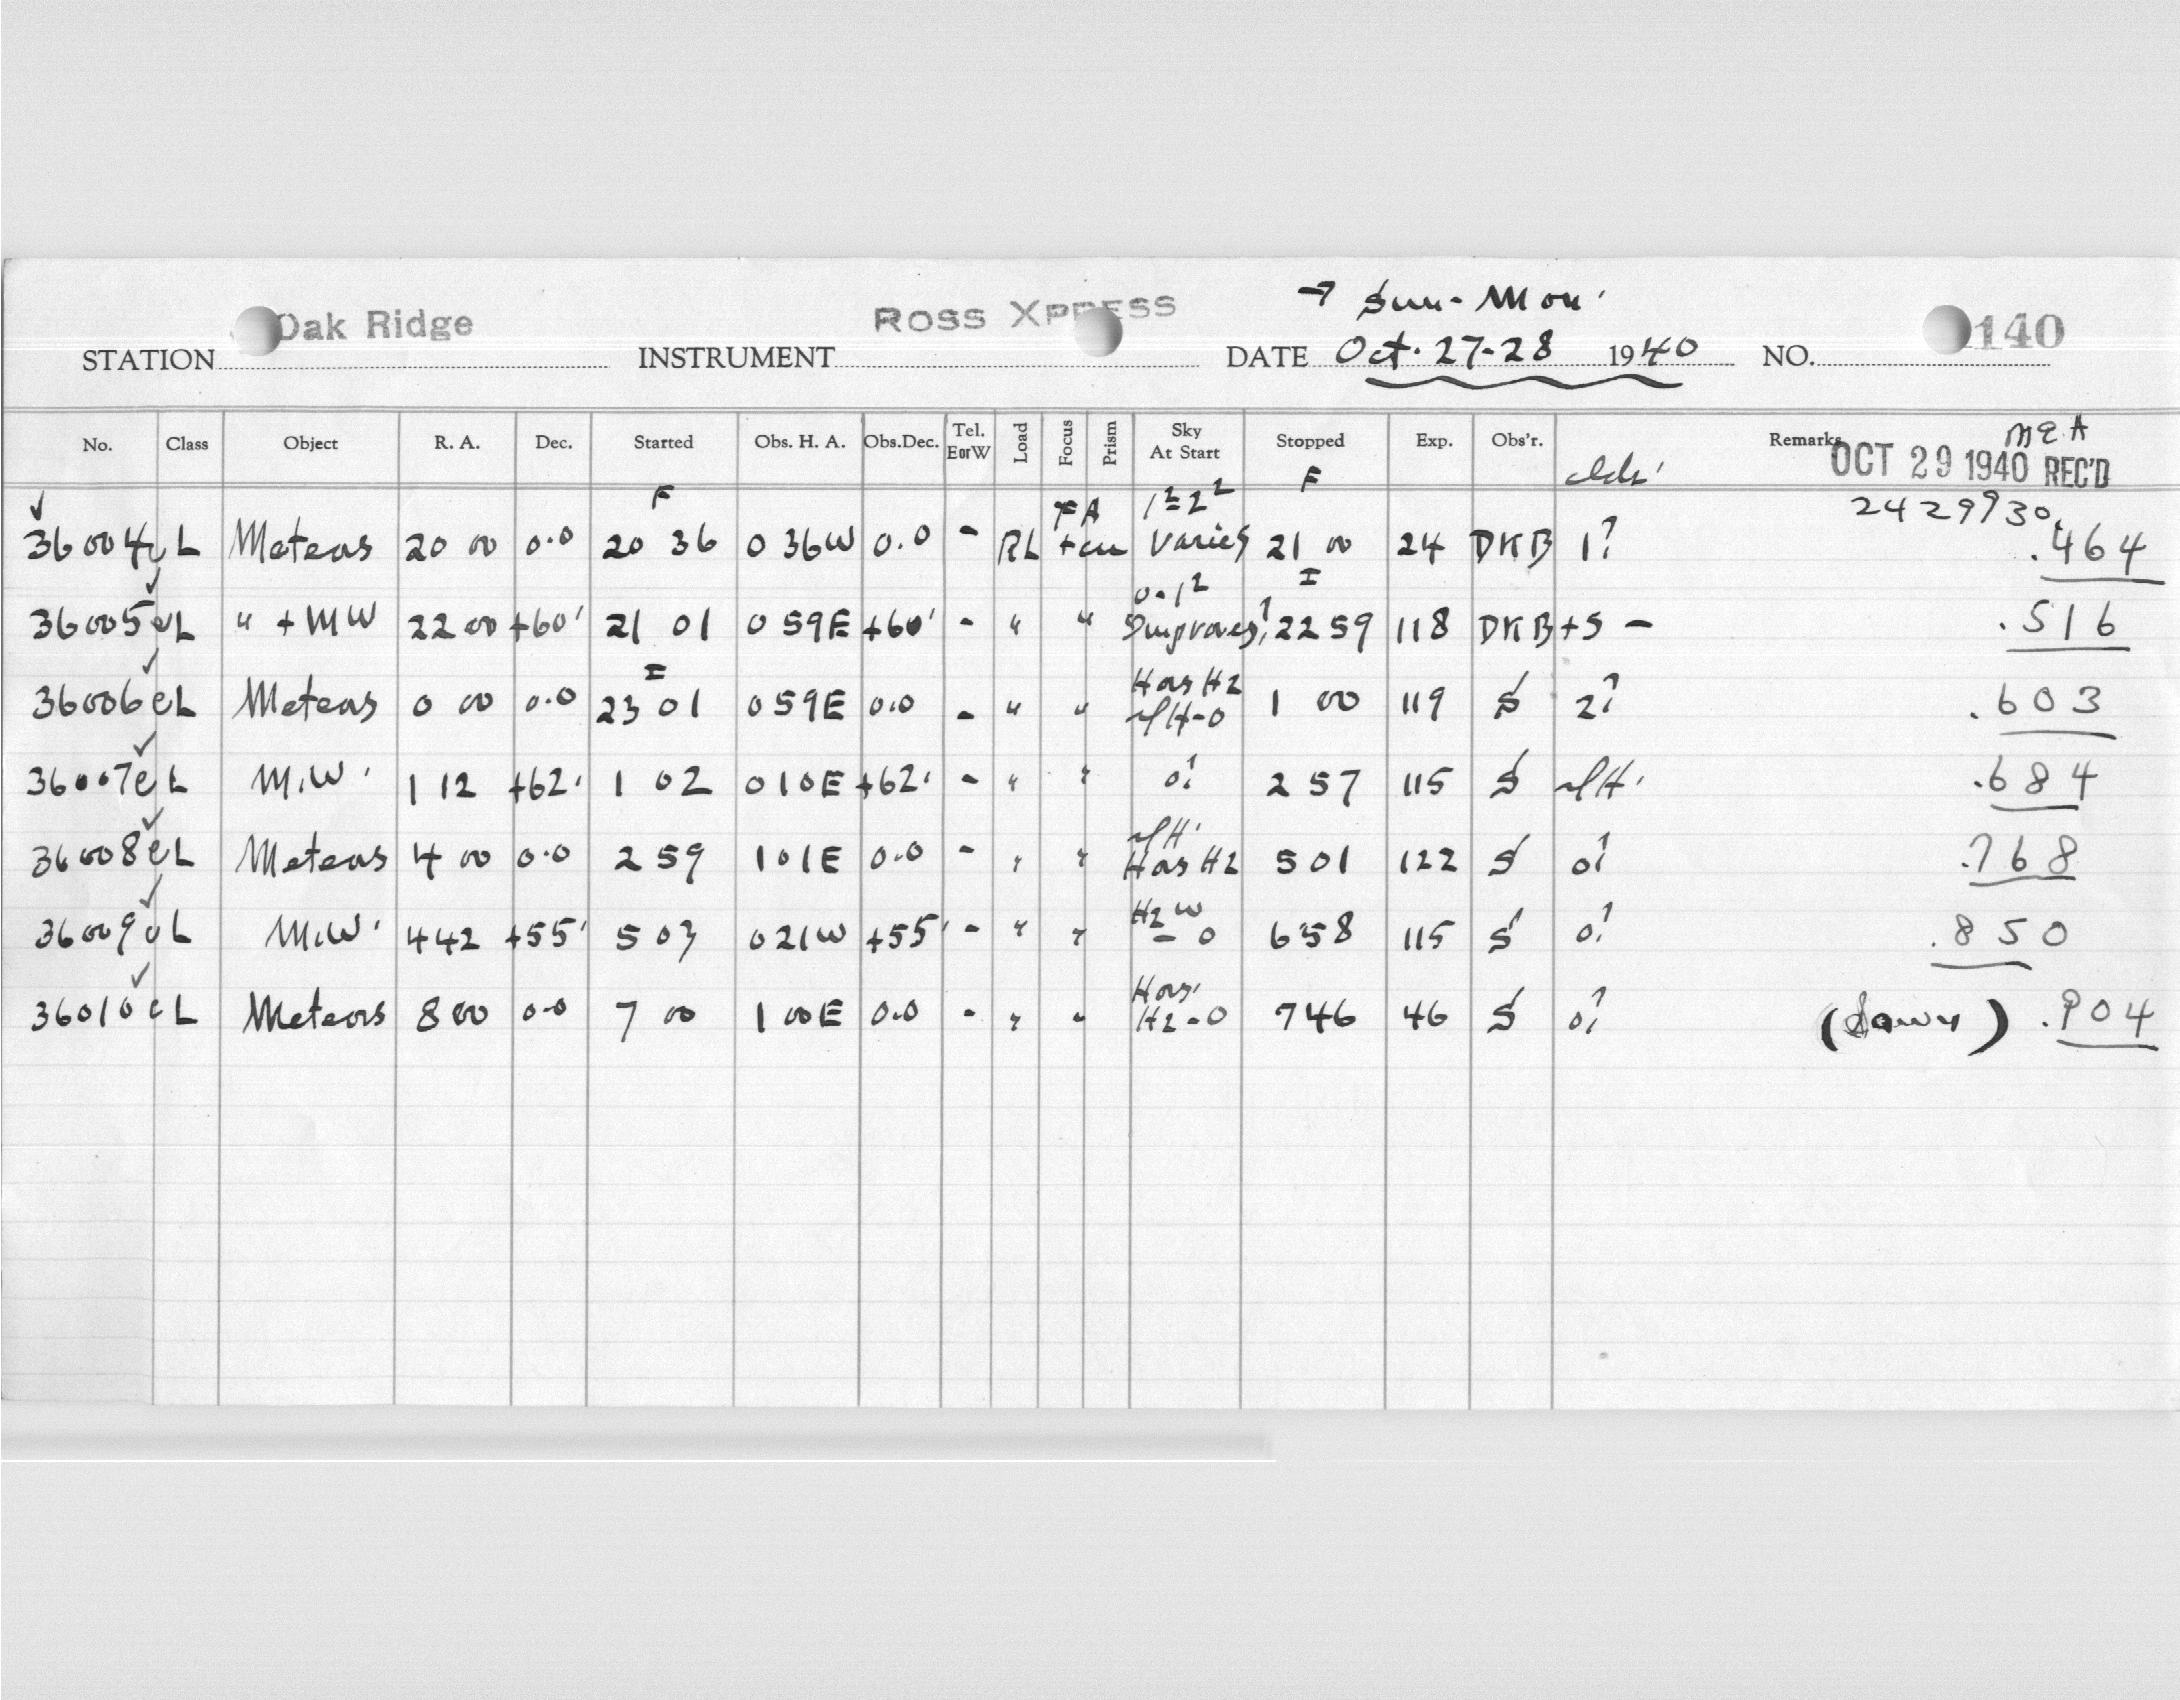 → Sun-Mon.
STATION Oak Ridge INSTRUMENT ROSS XPRESS DATE Oct. 27-28 1940 NO. 140
No. Class Object R. A. Dec. Started Obs. H. A. Obs.Dec. Tel. E or W Load Focus Prism Sky At Start Stopped Exp. Obs'r. Remarks
OCT 29 1940 REC'D
F F
2429930.
36004 L Meteors 20 00 0.0 20 36 0 36W 0.0 - RL FA 1² 2² Varies 21 00 24 DKB 1? .464
36005 L " + MW 22 00 +60' 21 01 0 59E +60' - " " 0-1² Improves? 22 59 118 DKB +5 - .516
36006 eL Meteors 0 00 0.0 23 01 0 59E 0.0 - " " Hor Hz 1 00 119 S 2? .603
36007 eL M.W. 1 12 +62' 1 02 0 10E +62' - " " 0? 2 57 115 S .684
36008 eL Meteors 4 00 0.0 2 59 1 01E 0.0 - " " Hor Hz 5 01 122 S 0? .768
36009 L M.W. 4 42 +55' 5 03 0 21W +55' - " " Hz W - 0 6 58 115 S 0? .850
36010 L Meteors 8 00 0.0 7 00 1 00E 0.0 - " " Hor. Hz - 0 7 46 46 S 0? (Dawn) .904